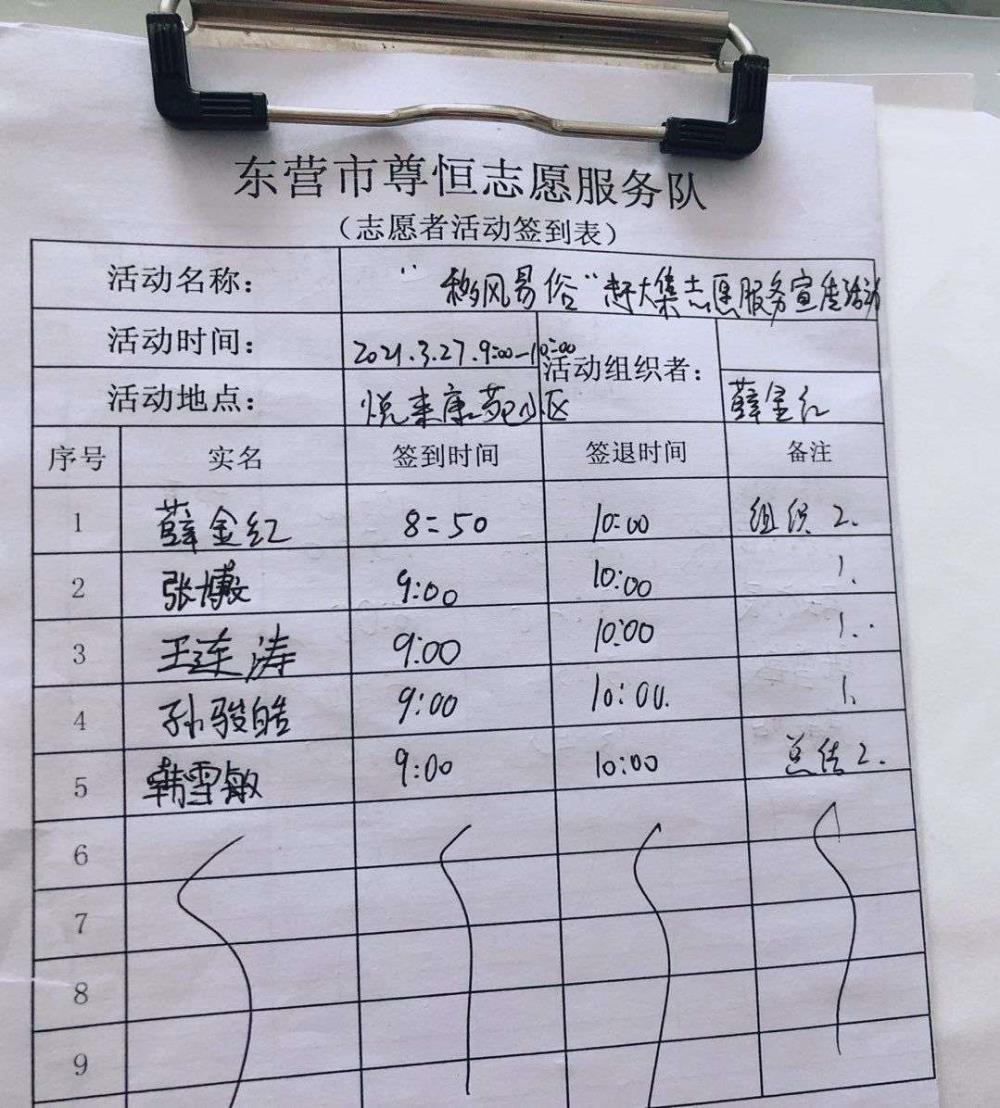 东营市尊恒志愿服务队
（志愿者活动签到表）
活动名称： “移风易俗”赶大集志愿服务宣传活动
活动时间： 2021.3.27.9:00-10:00
活动组织者： 薛金红
活动地点： 悦来康苑小区
序号 实名 签到时间 签退时间 备注
1 薛金红 8:50 10:00 组织 2.
2 张博 9:00 10:00 1.
3 王连涛 9:00 10:00 1.
4 孙骏皓 9:00 10:00. 1.
5 韩雪敏 9:00 10:00 总结 2.
6
7
8
9